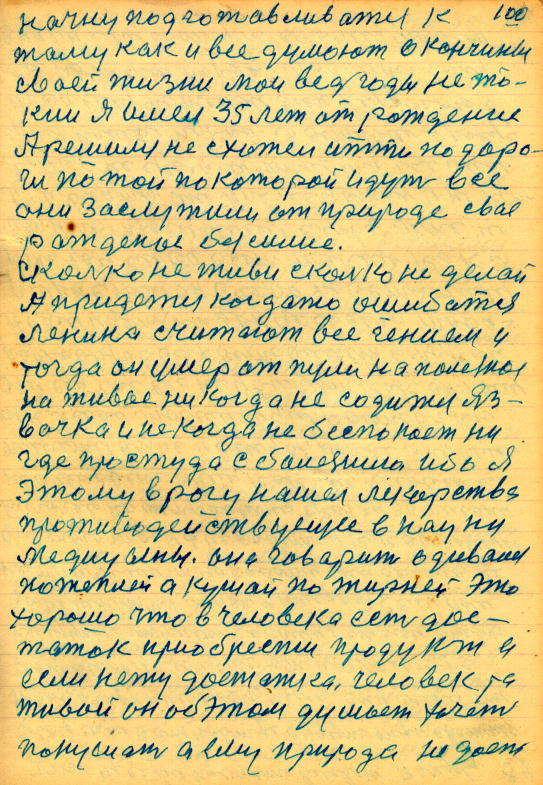 100
начну подготавливатся к
тому как и все думают о кончины
своей жизни мои ведь годы не та-
кии Я имел 35 лет от рождение
А решил не схотел итти по доро-
ги по той по которой идут все
они заслужили от природе свае
рождение бесилие.
Сколко не живи сколко не делай
А придется когдато ошибатся
Ленина считают все гением и
тогда он умер от пули на полезное
на живое никогда не содится яз-
вочка и не когда не беспокоет ни
где простуда с болезнию ибо Я
Этому врогу нашел лекарства
противодействующее в науки
медицины. она говорит одивайся
потеплей а кушай по жирней Это
хорошо что в человека есть дос-
таток приобрести продукт а
если нету достатка, человек
живой он обЭтом думает хочет
покушать а ему природа не дает